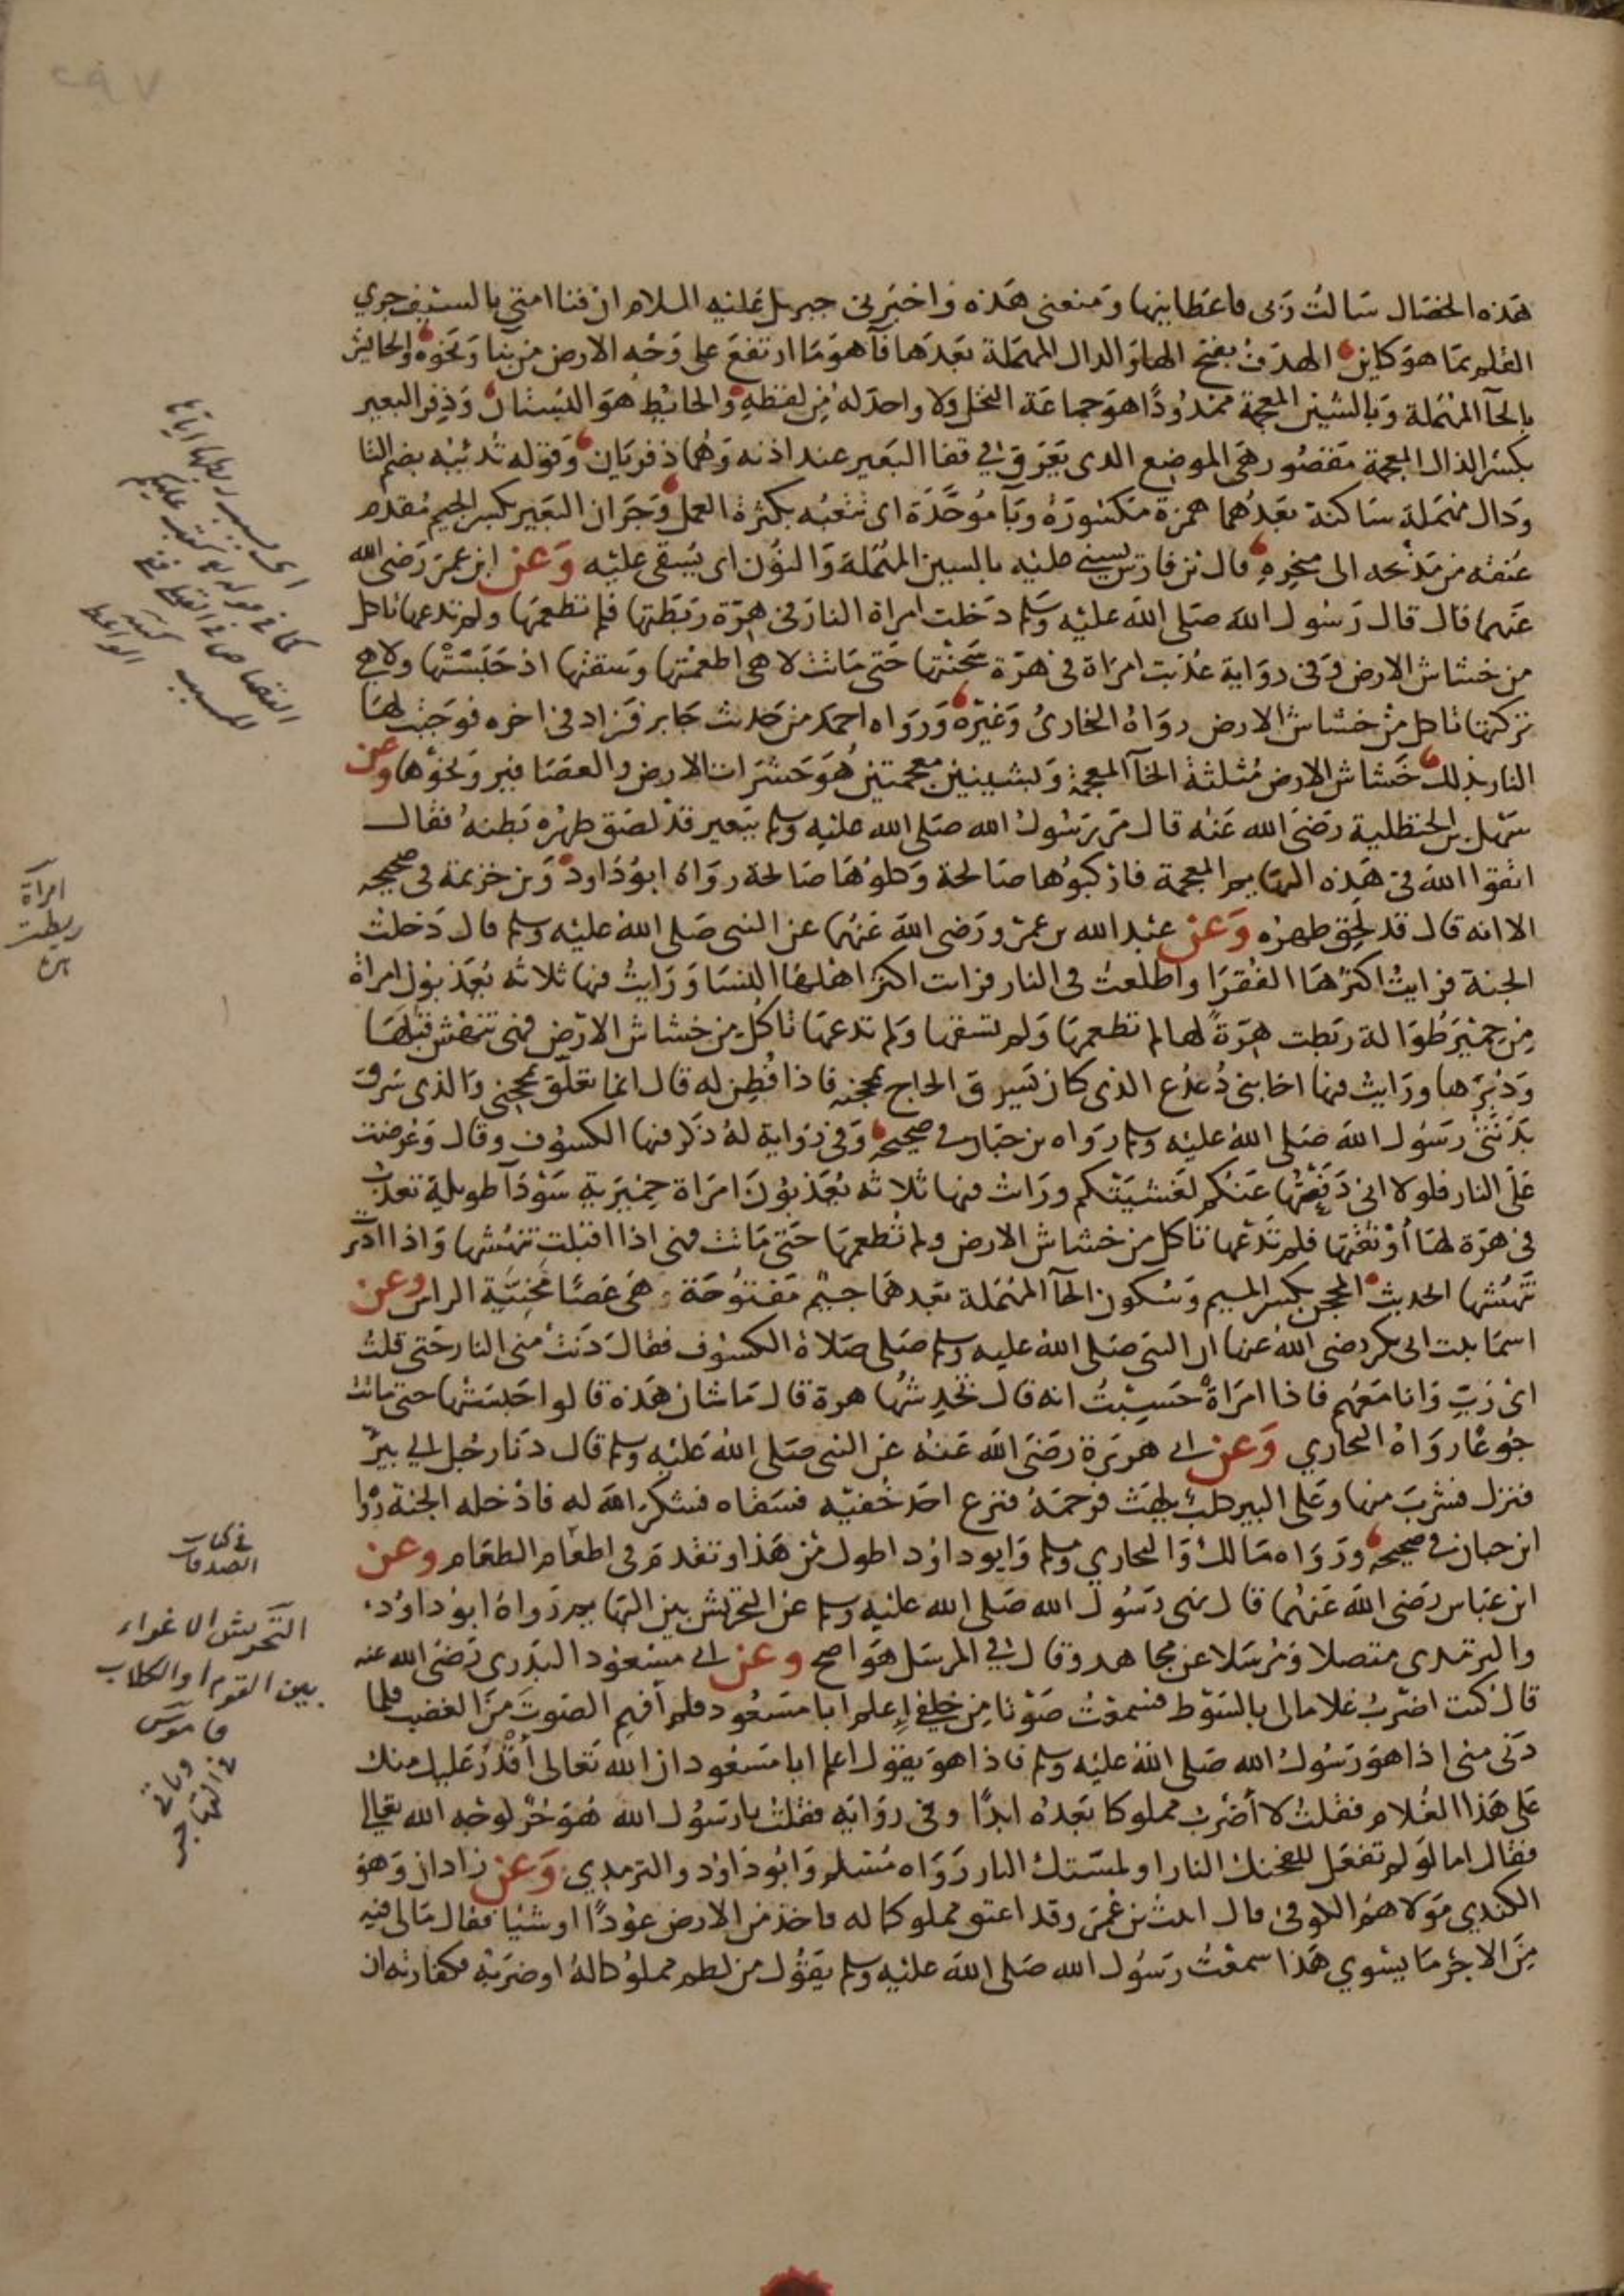 ٢٩٧
هذه الخصال سالت ربى فاعطانيها ومنعنى هذه واخبرنى جبريل عليه السلام ان فنا امتى بالسيف جرى
القلم بما هو كاين الهدف بفتح الها والدال المهملة بعدها فآ هو ما ارتفع على وجه الارض من بنا ونحوه والحائش
بالحآ المهملة وبالشين المعجمة ممدودًا هو جماعة النخل ولا واحد له من لفظه والحائط هو البستان وذفر البعير
بكسر الذال المعجمة مقصور هى الموضع الذى يعرق فى قفا البعير عند اذنه وهما ذفريان وقوله تدئبه بضم التا
ودال مهملة ساكنة بعدهما همزة مكسورة وبآ موحدة اى تتعبه بكثرة العمل وجران البعير بكسر الجيم مقدم
عنقه من مذبحه الى منخره قال بن فارس يسنى عليه بالسين المهملة والنون اى يسقى عليه وعن ابن عمر رضى الله
عنهما قال قال رسول الله صلى الله عليه وسلم دخلت امراة النار فى هرّة ربطتها فلم تطعمها ولم تدعها تاكل
من خشاش الارض وفى رواية عذبت امراة فى هرّة سجنتها حتى ماتت لا هى اطعمتها وسقتها اذ حبستها ولا هى
تركتها تاكل من خشاش الارض رواه البخارى وغيره ورواه احمد من حديث جابر فزاد فى اخره فوجبت لها
النار بذلك خشاش الارض مثلثة الخآ المعجمة وبشينين معجمتين هو حشرات الارض والعصافير ونحوها وعن
سهل بن الحنظلية رضى الله عنه قال مر رسول الله صلى الله عليه وسلم ببعير قد لصق ظهره ببطنه فقال
اتقوا الله فى هذه البهايم المعجمة فاركبوها صالحة وكلوها صالحة رواه ابو داود وبن خزيمة فى صحيحه
الا انه قال قد لحق ظهره وعن عبد الله بن عمرو رضى الله عنهما عن النبى صلى الله عليه وسلم قال دخلت
الجنة فرايت اكثرها الفقرا واطلعت فى النار فرايت اكثر اهلها النسا ورايت فيها ثلاثه يعذبون امراة
من حمير طوالة ربطت هرّةً لها لم تطعمها ولم تسقها ولم تدعها تاكل من خشاش الارض فهى تنهش قبلها
ودبرها ورايت فيها اخا بنى دعدع الذى كان يسرق الحاج بمحجنه فاذا فطن له قال انما تعلق بمحجنى والذى سرق
بدنتى رسول الله صلى الله عليه وسلم رواه بن حبان فى صحيحه وفى رواية له ذكر فيها الكسوف وقال وعرضت
على النار فلولا انى دفعتها عنكم لغشيتكم ورايت فيها ثلاثه يعذبون امراة حميرية سودآ طويلة تعذب
فى هرة لها اوثقتها فلم تدعها تاكل من خشاش الارض ولم تطعمها حتى ماتت فهى اذا اقبلت تنهشها واذا ادبرت
تنهشها الحديث المحجن بكسر الميم وسكون الحآ المهملة بعدهما جيم مفتوحة هى عصًا محنيّة الراس وعن
اسما بنت ابى بكر رضى الله عنها ان النبى صلى الله عليه وسلم صلى صلاة الكسوف فقال دنت منى النار حتى قلت
اى رب وانا معهم فاذا امراة حسبت انه قال تخدشها هرة قال ما شان هذه قالوا حبستها حتى ماتت
جوعًا رواه البخاري وعن ابى هريرة رضى الله عنه عن النبى صلى الله عليه وسلم قال دنا رجل الى بير
فنزل فشرب منها وعلى البير كلب يلهث فرحمه فنزع احد خفيه فسقاه فشكر الله له فادخله الجنة رواه
ابن حبان فى صحيحه ورواه مالك والبخاري ومسلم وابو داود اطول من هذا وتقدم فى اطعام الطعام وعن
ابن عباس رضى الله عنهما قال نهى رسول الله صلى الله عليه وسلم عن التحريش بين البهايم رواه ابو داود
والترمذى متصلا ومرسلا عن مجاهد وقال فى المرسل هو اصح وعن ابى مسعود البدرى رضى الله عنه
قال كنت اضرب غلاما لى بالسوط فسمعت صوتا من خلفى اعلم ابا مسعود فلم افهم الصوت من الغضب فلما
دنى منى اذا هو رسول الله صلى الله عليه وسلم فاذا هو يقول اعلم ابا مسعود ان الله تعالى أقدر عليك منك
على هذا الغلام فقلت لا أضرب مملوكا بعده ابدًا وفى رواية فقلت يا رسول الله هو حرّ لوجه الله تعالى
فقال اما لو لم تفعل للفحتك النار او لمستك النار رواه مسلم وابو داود والترمذي وعن زاذان وهو
الكندي مولاهم الكوفى قال اتيت بن عمر وقد اعتق مملوكا له فاخذ من الارض عودًا او شيئا فقال ما لى فيه
من الاجر ما يسوي هذا سمعت رسول الله صلى الله عليه وسلم يقول من لطم مملوكا له او ضربه فكفارته ان
امرأة
ربطت
هرة
فى كتاب
الصدقات
التحريش الاغراء
بين القوم او الكلاب
قاموس